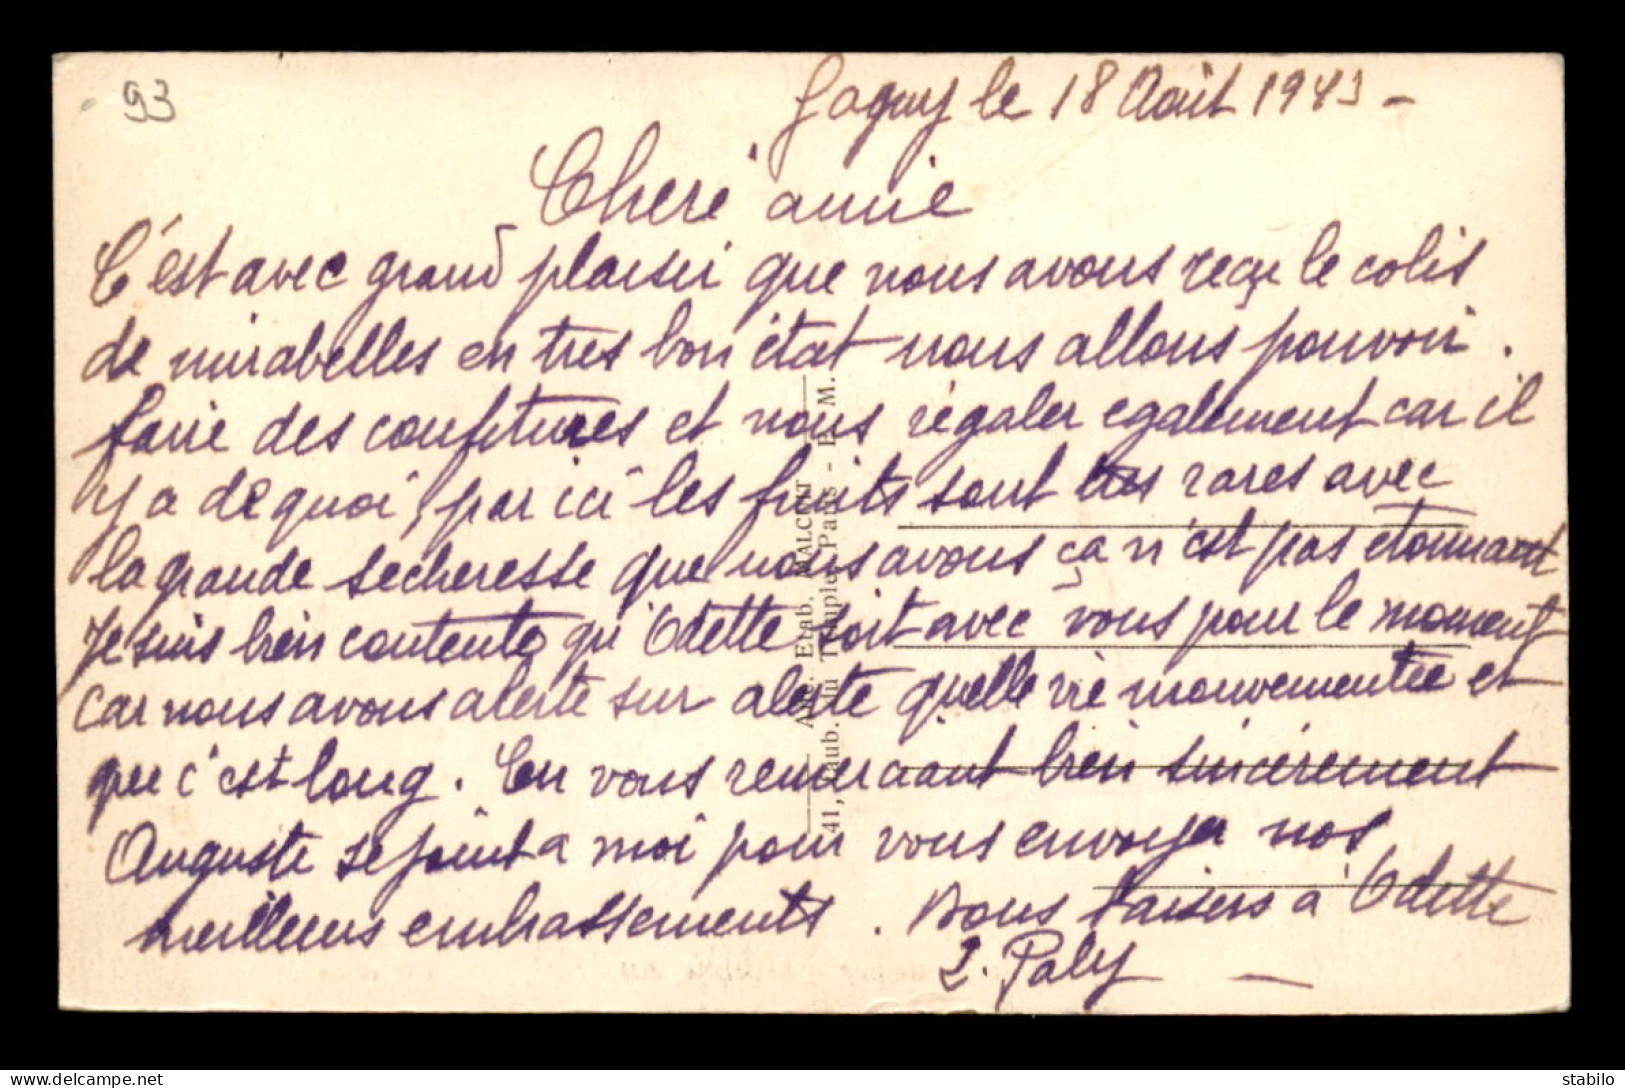 93
Gagny le 18 Août 1943 -
Cheré amie
C'est avec grand plaisir que nous avons reçu le colis
de mirabelles en tres bon état nous allons pouvoir.
faire des confitures et nous régaler egalement car il
y a de quoi, par ici les fruits sont tres rares avec
la grande secheresse que nous avons ça n'est pas étonnant
Je suis bien contente qu'Odette soit avec vous pour le moment
car nous avons alerte sur alerte quelle vie mouvementée et
que c'est long. En vous remerciant bien sincèrement
Auguste se joint a moi pour vous envoyer nos
meilleurs embrassements. Bons baisers à Odette
L. Paly —
Anc. Etab. MALCUIT
41, Faub. du Temple, Paris - P. M.
stabilo
https://www.delcampe.net